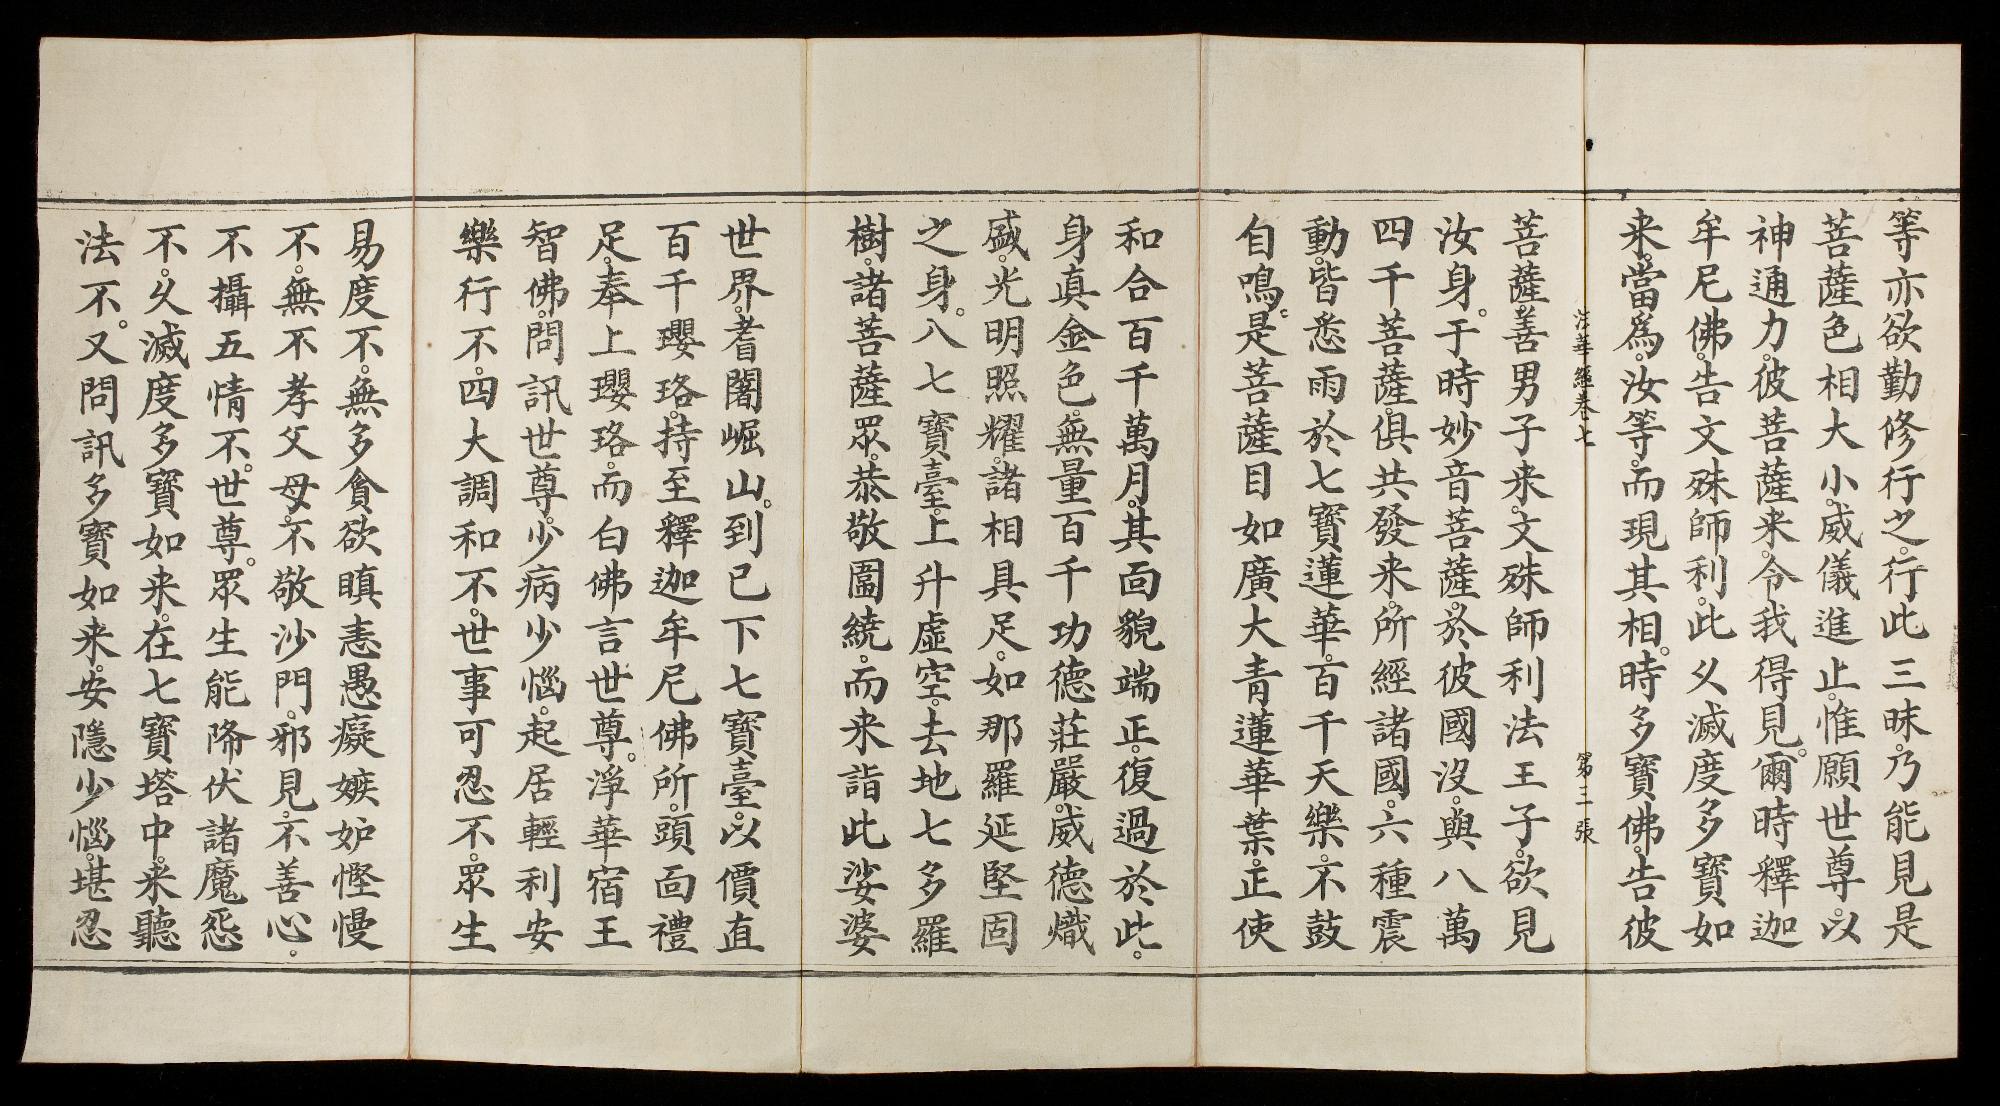 等亦欲勤修行之。行此三昧。乃能見是
菩薩色相大小。威儀進止。惟願世尊。以
神通力。彼菩薩来。令我得見。爾時釋迦
牟尼佛。告文殊師利。此久滅度多寶如
来。當為汝等。而現其相。時多寶佛。告彼
法華經卷七
第三張
菩薩。善男子来。文殊師利法王子。欲見
汝身。于時妙音菩薩。於彼國沒。與八萬
四千菩薩。俱共發来。所經諸國。六種震
動。皆悉雨於七寶蓮華。百千天樂。不鼓
自鳴。是菩薩目如廣大青蓮華葉。正使
和合百千萬月。其面貌端正。復過於此。
身真金色。無量百千功德莊嚴。威德熾
盛。光明照耀。諸相具足。如那羅延堅固
之身。入七寶臺。上升虛空。去地七多羅
樹。諸菩薩眾。恭敬圍繞。而来詣此娑婆
世界。耆闍崛山。到已下七寶臺。以價直
百千瓔珞。持至釋迦牟尼佛所。頭面禮
足。奉上瓔珞。而白佛言世尊。淨華宿王
智佛。問訊世尊。少病少惱。起居輕利安
樂行不。四大調和不。世事可忍不。眾生
易度不。無多貪欲瞋恚愚癡嫉妒慳慢
不。無不孝父母。不敬沙門。邪見。不善心。
不攝五情不。世尊。眾生能降伏諸魔怨
不。久滅度多寶如来。在七寶塔中。来聽
法不。又問訊多寶如来。安隱少惱。堪忍